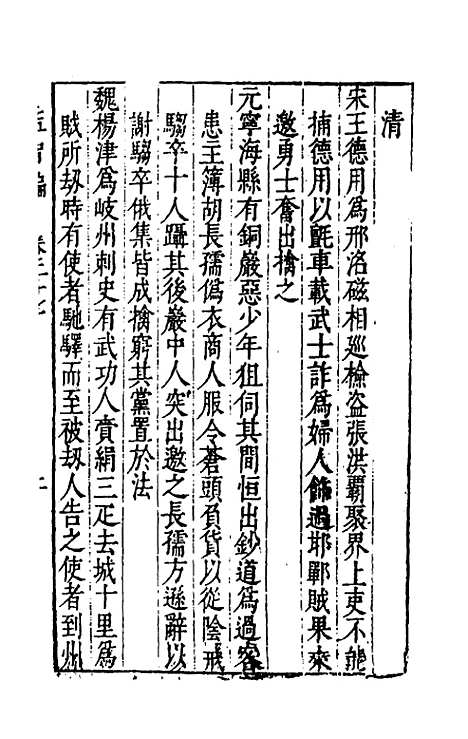 清
宋王德用為邢洺磁相巡檢盜張洪霸聚界上吏不能
捕德用以氈車載武士詐為婦人飾過邯鄲賊果來
邀勇士奮出擒之
元寧海縣有銅巖惡少年狙伺其間恒出鈔道為過客
患主簿胡長孺偽衣商人服令蒼頭負貨以從陰戒
騶卒十人躡其後巖中人突出邀之長孺方遜辭以
謝騶卒俄集皆成擒窮其黨置於法
魏楊津為岐州刺史有武功人賫絹三疋去城十里為
賊所刼時有使者馳驛而至被刼人告之使者到州
卷三十七
二